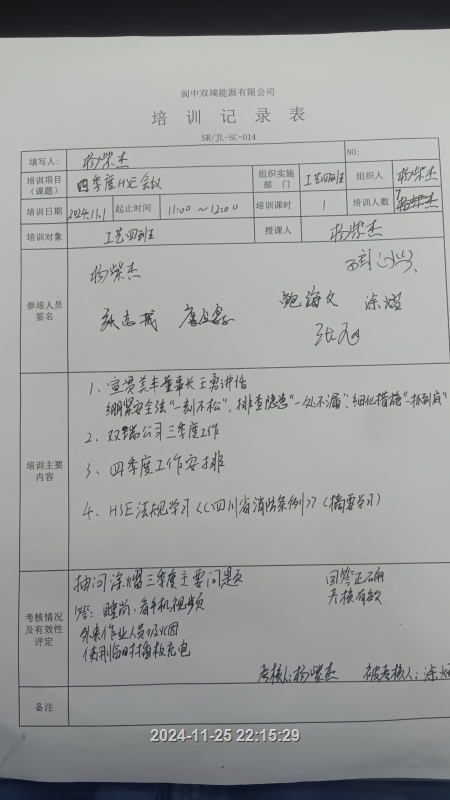 阆中双瑞能源有限公司
培训记录表
SR/JL-SC-014
填写人： 杨紫杰 NO:
培训项目（课题） 四季度HSE会议 组织实施部门 工艺四班 组织人 杨紫杰
培训日期 2024.11.1 起止时间 11:00～12:00 培训课时 1 培训人数 7
培训对象 工艺四班 授课人 杨紫杰
参培人员签名
杨紫杰
张志成 鲍海文 涂熠
培训主要内容
1、宣贯美丰董事长王勇讲话
绷紧安全弦“一刻不松”，排查隐患“一处不漏”、细化措施“一抓到底”
2、双瑞公司三季度工作
3、四季度工作安排
4、HSE法规学习《四川省消防条例》（摘要学习）
考核情况及有效性评定
抽问涂熠三季度主要问题 回答正确
答：睡岗、看手机视频 考核有效
外来作业人员
使用临时插板充电
考核人：杨紫杰 被考核人：涂熠
备注
2024-11-25 22:15:29